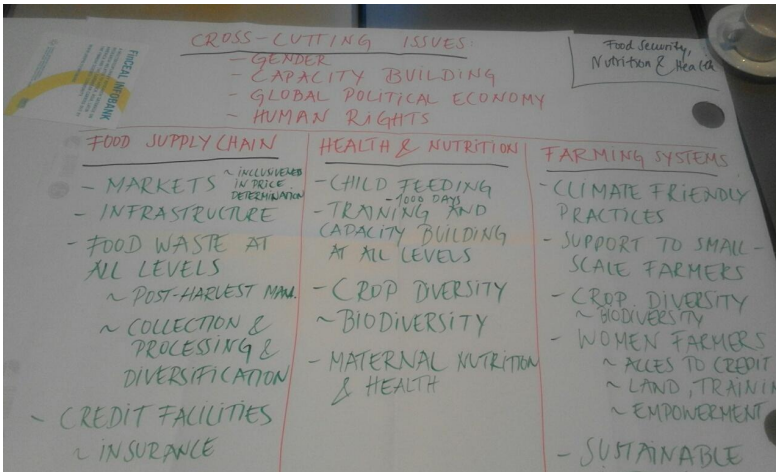 CROSS-CUTTING ISSUES:
- GENDER
- CAPACITY BUILDING
- GLOBAL POLITICAL ECONOMY
- HUMAN RIGHTS
Food Security,
Nutrition & Health
FINDEAL INFOBANK
FOOD SUPPLY CHAIN
- MARKETS
~ INCLUSIVENESS
IN PRICE
DETERMINATION
- INFRASTRUCTURE
- FOOD WASTE AT
ALL LEVELS
~ POST-HARVEST MAN.
~ COLLECTION &
PROCESSING &
DIVERSIFICATION
- CREDIT FACILITIES
~ INSURANCE
HEALTH & NUTRITION
- CHILD FEEDING
- 1000 DAYS
- TRAINING AND
CAPACITY BUILDING
AT ALL LEVELS
- CROP DIVERSITY
~ BIODIVERSITY
- MATERNAL NUTRITION
& HEALTH
FARMING SYSTEMS
- CLIMATE FRIENDLY
PRACTICES
- SUPPORT TO SMALL-
SCALE FARMERS
- CROP DIVERSITY
~ BIODIVERSITY
- WOMEN FARMERS
~ ACCES TO CREDIT
~ LAND, TRAININ
~ EMPOWERMENT
- SUSTAINABLE